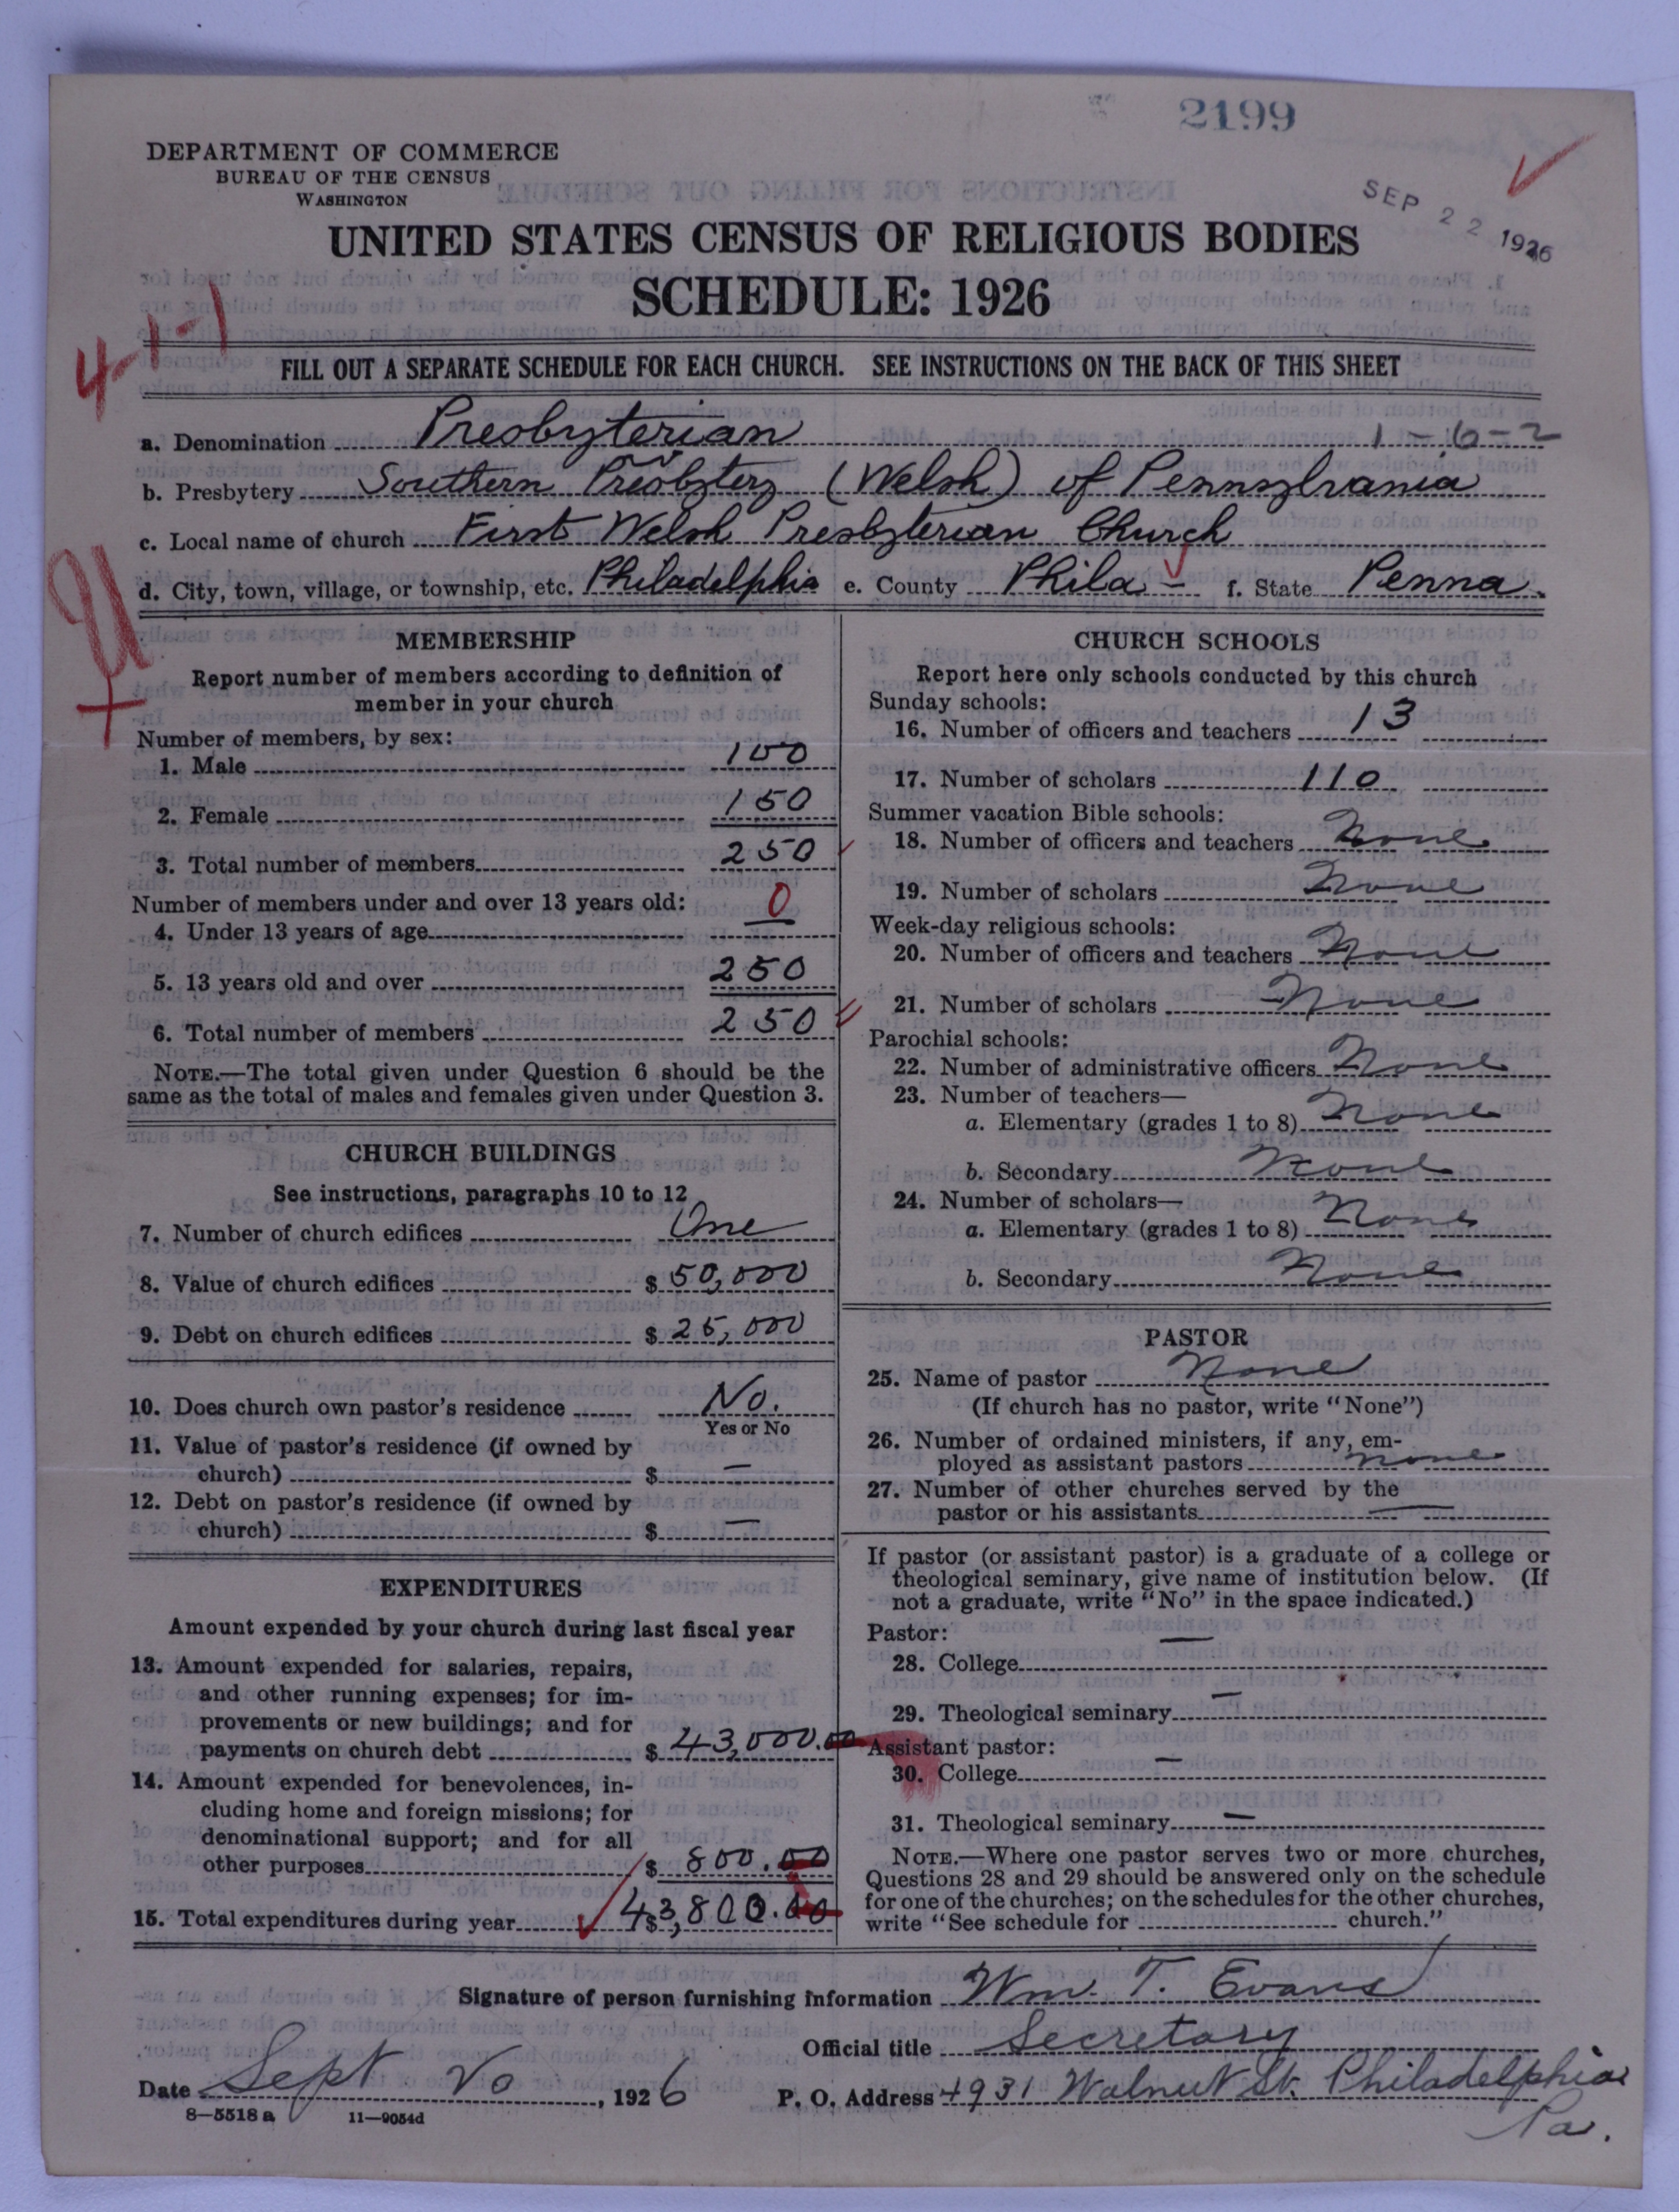 2199
DEPARTMENT OF COMMERCE
BUREAU OF THE CENSUS
WASHINGTON
SEP 22 1926
UNITED STATES CENSUS OF RELIGIOUS BODIES
SCHEDULE: 1926
4-1-1
FILL OUT A SEPARATE SCHEDULE FOR EACH CHURCH. SEE INSTRUCTIONS ON THE BACK OF THIS SHEET
a. Denomination Presbyterian 1-6-2
b. Presbytery Southern Presbytery (Welsh) of Pennsylvania
c. Local name of church First Welsh Presbyterian Church
d. City, town, village, or township, etc. Philadelphia e. County Phila – f. State Penna.
U
MEMBERSHIP
Report number of members according to definition of
member in your church
Number of members, by sex:
1. Male 100
2. Female 150
3. Total number of members 250
Number of members under and over 13 years old:
4. Under 13 years of age 0
5. 13 years old and over 250
6. Total number of members 250
NOTE.—The total given under Question 6 should be the
same as the total of males and females given under Question 3.
CHURCH BUILDINGS
See instructions, paragraphs 10 to 12
7. Number of church edifices One
8. Value of church edifices $ 50,000
9. Debt on church edifices $ 25,000
10. Does church own pastor's residence No.
Yes or No
11. Value of pastor's residence (if owned by
church) $ –
12. Debt on pastor's residence (if owned by
church) $ –
EXPENDITURES
Amount expended by your church during last fiscal year
13. Amount expended for salaries, repairs,
and other running expenses; for im-
provements or new buildings; and for
payments on church debt $ 43,000.00
14. Amount expended for benevolences, in-
cluding home and foreign missions; for
denominational support; and for all
other purposes $ 800.00
15. Total expenditures during year $ 43,800.00
CHURCH SCHOOLS
Report here only schools conducted by this church
Sunday schools:
16. Number of officers and teachers 13
17. Number of scholars 110
Summer vacation Bible schools:
18. Number of officers and teachers None
19. Number of scholars None
Week-day religious schools:
20. Number of officers and teachers None
21. Number of scholars None
Parochial schools:
22. Number of administrative officers None
23. Number of teachers—
a. Elementary (grades 1 to 8) None
b. Secondary None
24. Number of scholars—
a. Elementary (grades 1 to 8) None
b. Secondary None
PASTOR
25. Name of pastor None
(If church has no pastor, write "None")
26. Number of ordained ministers, if any, em-
ployed as assistant pastors none
27. Number of other churches served by the
pastor or his assistants —
If pastor (or assistant pastor) is a graduate of a college or
theological seminary, give name of institution below. (If
not a graduate, write "No" in the space indicated.)
Pastor:
28. College —
29. Theological seminary —
Assistant pastor:
30. College —
31. Theological seminary —
NOTE.—Where one pastor serves two or more churches,
Questions 28 and 29 should be answered only on the schedule
for one of the churches; on the schedules for the other churches,
write "See schedule for church."
Signature of person furnishing information Wm. T. Evans
Official title Secretary
Date Sept 20, 1926 P. O. Address 4931 Walnut St. Philadelphia
Pa.
8—5518 a 11—9054d